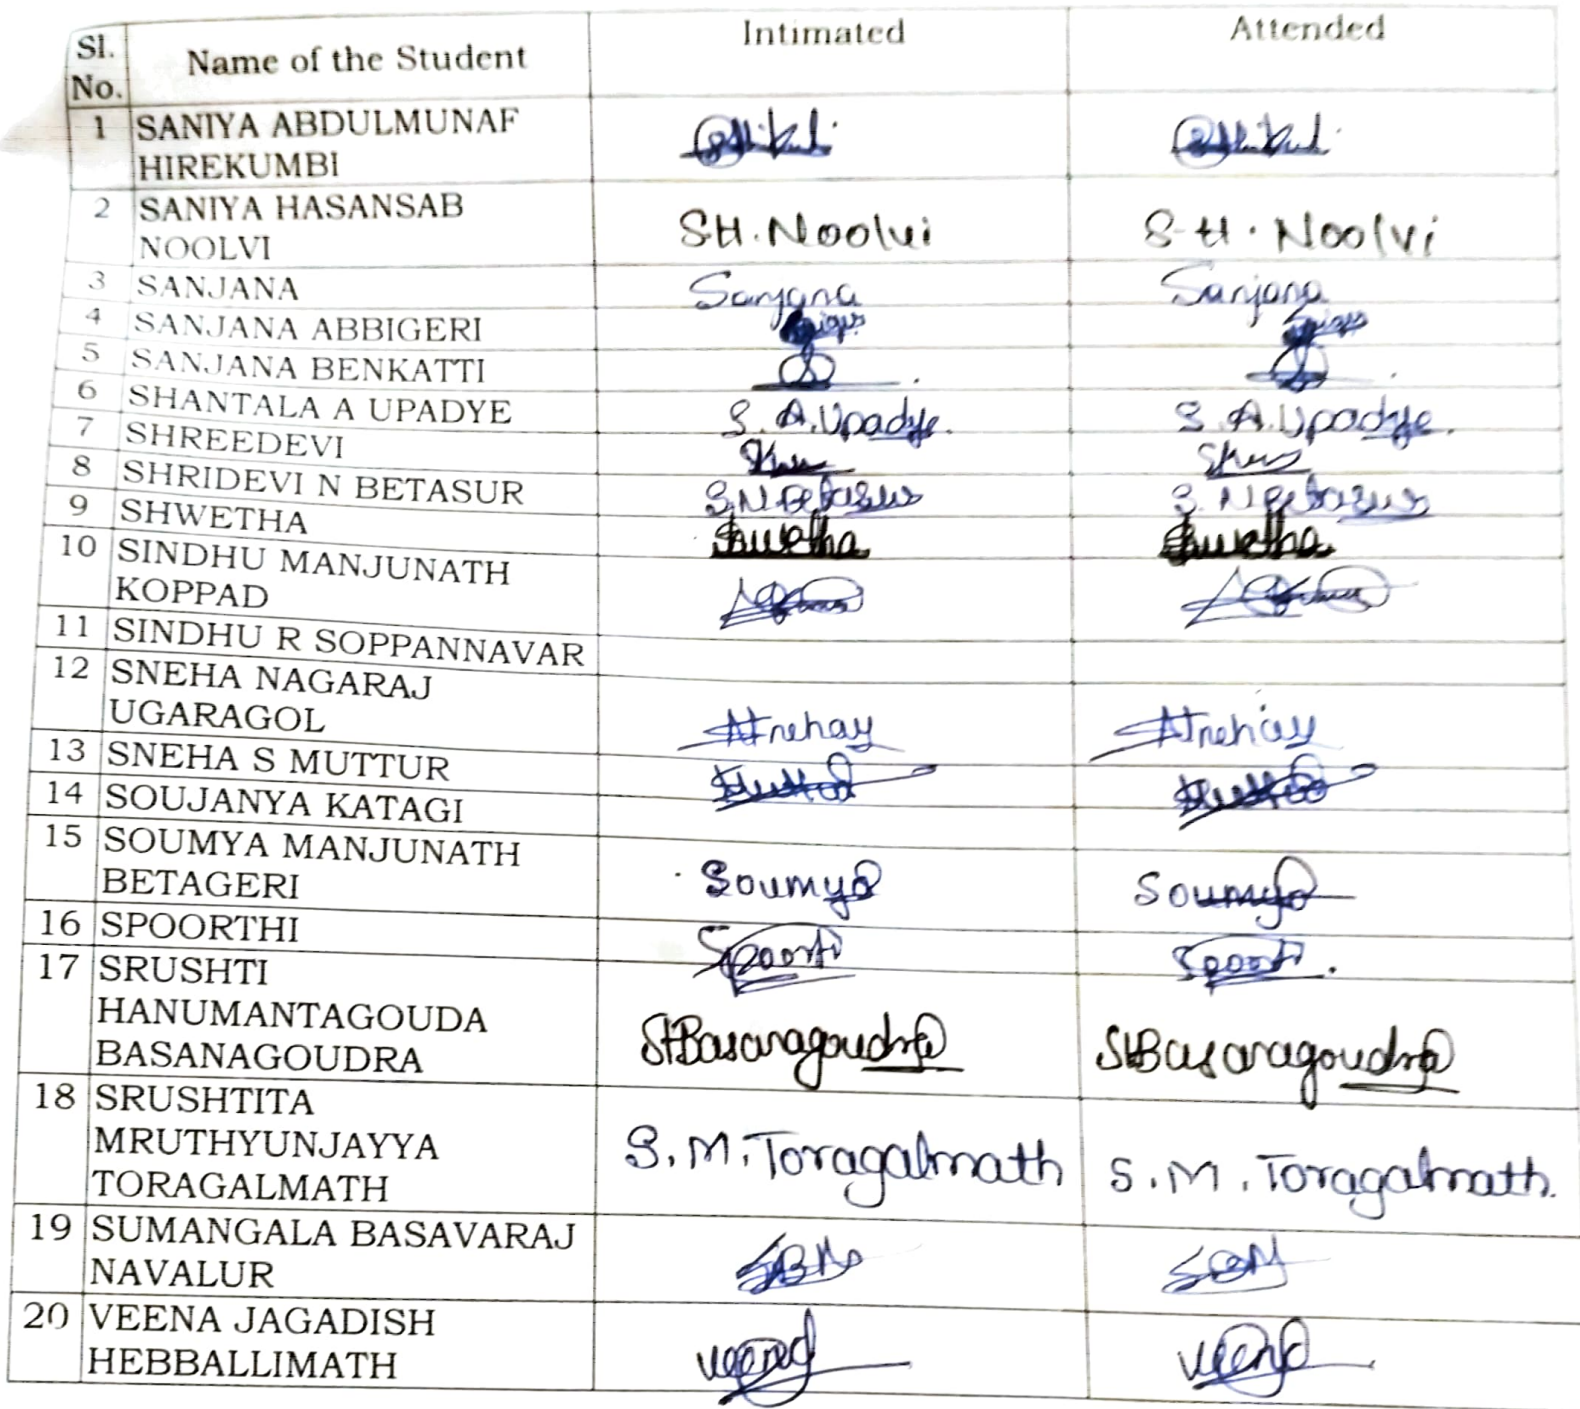 Sl. No. Name of the Student Intimated Attended
1 SANIYA ABDULMUNAF
HIREKUMBI
2 SANIYA HASANSAB
NOOLVI S.H. Noolvi S.H. Noolvi
3 SANJANA Sanjana Sanjana
4 SANJANA ABBIGERI
5 SANJANA BENKATTI
6 SHANTALA A UPADYE S. A. Upadye. S. A. Upadye.
7 SHREEDEVI
8 SHRIDEVI N BETASUR S.N Betasur S. N Betasur
9 SHWETHA Shwetha Shwetha
10 SINDHU MANJUNATH
KOPPAD
11 SINDHU R SOPPANNAVAR
12 SNEHA NAGARAJ
UGARAGOL
13 SNEHA S MUTTUR
14 SOUJANYA KATAGI
15 SOUMYA MANJUNATH
BETAGERI Soumya Soumya
16 SPOORTHI Spoorti Spoorti.
17 SRUSHTI
HANUMANTAGOUDA
BASANAGOUDRA SHBasanagoudra SHBasanagoudra
18 SRUSHTITA
MRUTHYUNJAYYA
TORAGALMATH S. M. Toragalmath S. M. Toragalmath.
19 SUMANGALA BASAVARAJ
NAVALUR SBN SBN
20 VEENA JAGADISH
HEBBALLIMATH Veena Veena